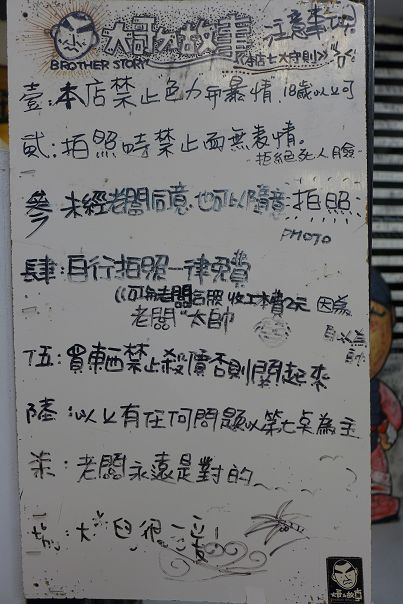 大哥的故事
注意事項
BROTHER STORY
《本店七大守則》
壹:本店禁止色力母暴情 18歲以上可
貳:拍照時禁止面無表情。
拒絕死人臉
參 未經老闆同意.也可以隨意拍照
PHOTO
肆:自行拍照一律免費
老闆"太帥
因為
伍:買東西禁止殺價否則關起來
陸:以上有任何問題以第七条為主
柒:老闆永遠是對的
大哥的故事